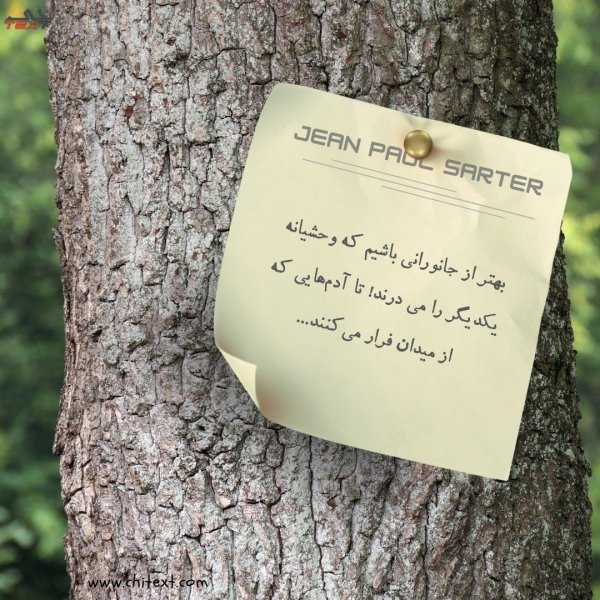 JEAN PAUL SARTER
بهتر از جانورانی باشیم که وحشیانه
یکدیگر را می درند! تا آدم‌هایی که
از میدان فرار می‌کنند...
www.chitext.com